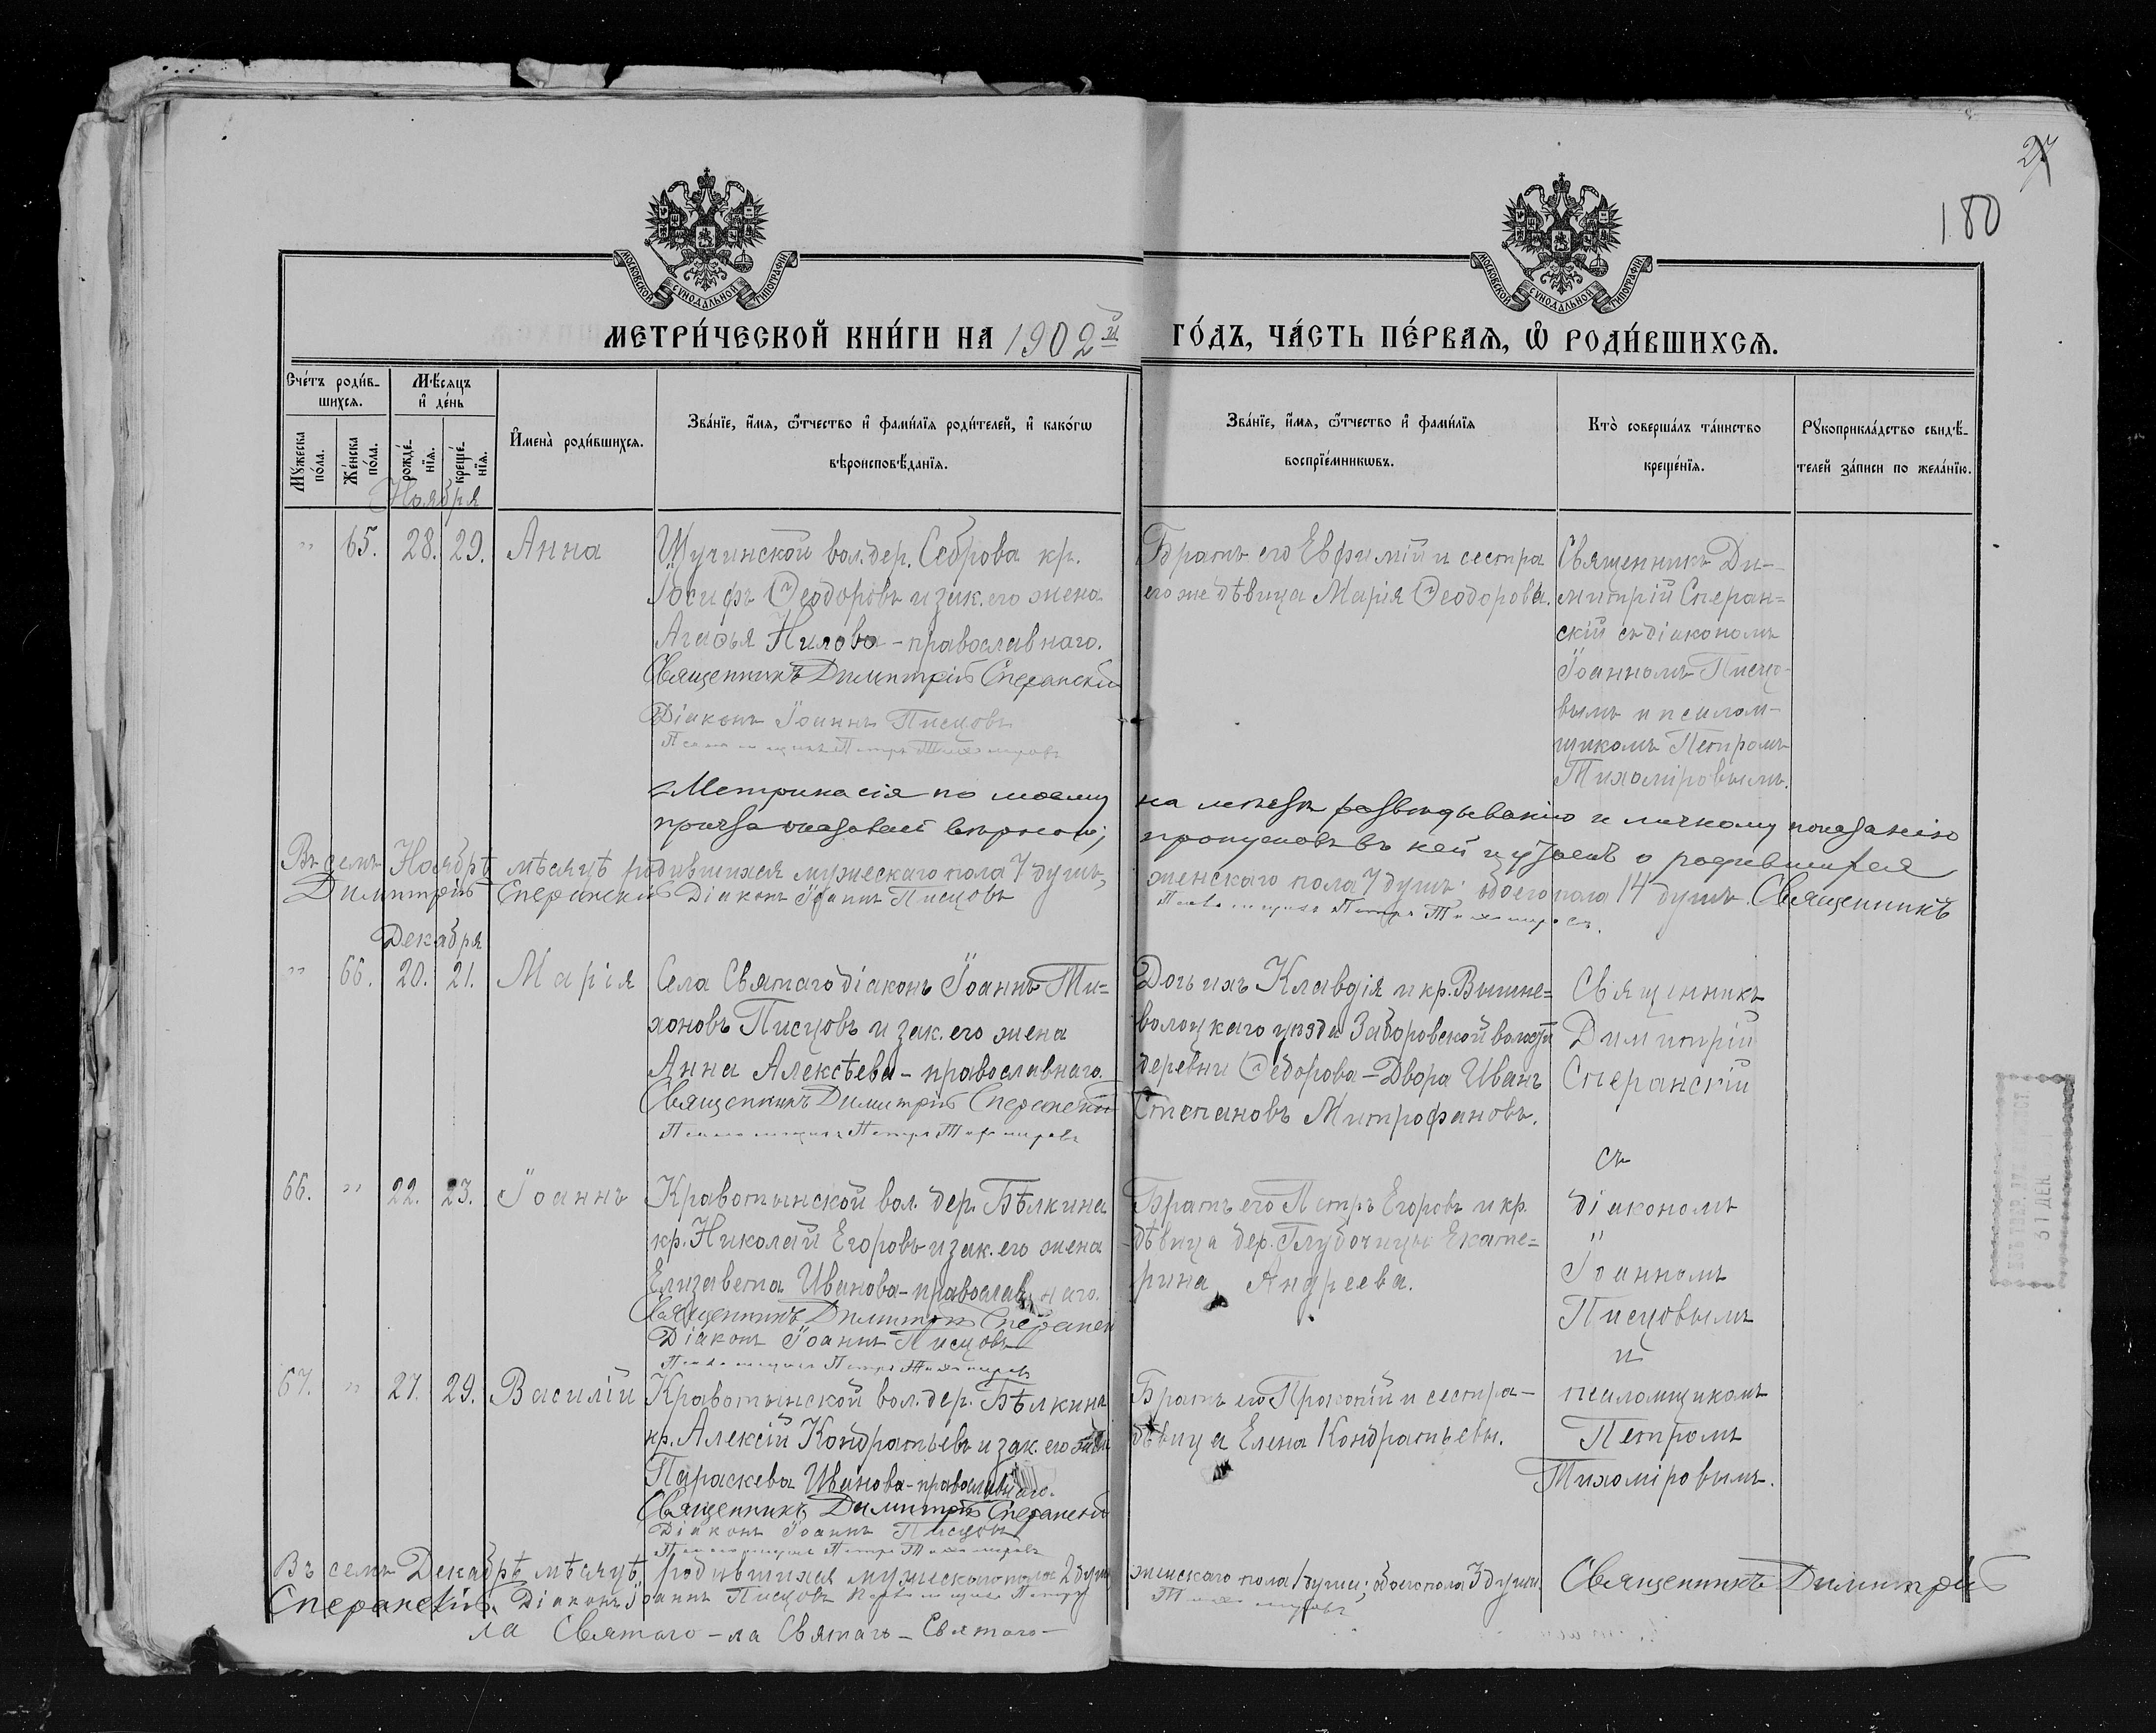 27
180
МОСКОВСКОЙ СѴНОДАЛЬНОЙ ТИПОГРАФІИ
МОСКОВСКОЙ СѴНОДАЛЬНОЙ ТИПОГРАФІИ
МЕТРИ́ЧЕСКОЙ КНИ́ГИ НА 1902й ГО́ДЪ, ЧА́СТЬ ПЕ́РВАѦ, Ѡ҆ РОДИ́ВШИХСѦ.
Сче́тъ роди́в-
шихсѧ.
Мѣ́сѧцъ
и҆ де́нь
Мꙋ́жеска по́ла.
Же́нска по́ла.
рожде́-
нїѧ.
креще́-
нїѧ.
И҆мена̀ роди́вшихсѧ.
Зва́нїе, и҆́мѧ, ѻ҆́тчество и҆ фами́лїѧ роди́телей, и҆ како́гѡ
вѣроисповѣ́данїѧ.
Зва́нїе, и҆́мѧ, ѻ҆́тчество и҆ фами́лїѧ
воспрїе́мникѡвъ.
Кто̀ соверша́лъ та́инство
креще́нїѧ.
Рꙋкоприкла́дство свидѣ́-
телей за́писи по жела́нїю.
Ноября
" 65. 28. 29. Анна
Щучинской вол. дер. Себрова кр.
Іосифъ Ѳеодоровъ и зак. его жена
Агаѳья Нилова - православнаго.
Священникъ Димитрій Сперанскій
Діаконъ Іоаннъ Писцовъ
Псаломщикъ Петръ Тихомировъ
Братъ его Евфимій и сестра
его же дѣвица Марія Ѳеодорова.
Священникъ Ди-
митрій Сперан=
скій съ діакономъ
Іоанномъ Писцо-
вымъ и псалом-
щикомъ Петромъ
Тихоміровымъ.
Метрика сія по моему на мѣстѣ развѣдыванію и личному показанію
причта оказалась вѣрною; пропусковъ въ ней о родившихся
Въ семъ Ноябрѣ мѣсяцѣ родившихся мужескаго пола 7 душъ, женскаго пола 7 душъ; обоего пола 14 душъ. Священникъ
Димитрій Сперанскій Діаконъ Іоаннъ Писцовъ Псаломщикъ Петръ Тихомировъ.
Декабря
" 66. 20. 21. Марія
Села Святаго діаконъ Іоаннъ Ти=
хоновъ Писцовъ и зак. его жена
Анна Алексѣева - православнаго.
Священникъ Димитрій Сперанскій
Псаломщикъ Петръ Тихомировъ
Дочь ихъ Клавдія и кр. Вышне=
волоцкаго уѣзда Заборовской волости
деревни Ѳедорова-Двора Иванъ
Степановъ Митрофановъ.
Священникъ
Димитрій
Сперанскій
съ
66. " 22. 23. Іоаннъ
Кравотынской вол. дер. Бѣлкина
кр. Николай Егоровъ и зак. его жена
Елизавета Иванова - православнаго.
Священникъ Димитрій Сперанск
Діаконъ Іоаннъ Писцовъ
Псаломщикъ Петръ Тихомировъ
Братъ его Петръ Егоровъ и кр.
дѣвица дер. Глубочицы Екате=
рина Андреева.
діакономъ
"
Іоанномъ
Писцовымъ
и
67. " 27. 29. Василій
Кравотынской вол. дер. Бѣлкина
кр. Алексій Кондратьевъ и зак. его жена
Параскева Иванова - православнаго.
Священникъ Димитрій Сперанскій
Діаконъ Іоаннъ Писцовъ
Псаломщикъ Петръ Тихомировъ
Братъ его Прокопій и сестра-
дѣвица Елена Кондратьевы.
псаломщикомъ
Петромъ
Тихоміровымъ.
Въ семъ Декабрѣ мѣсяцѣ родившихся мужескаго пола 2 души женскаго пола 1 душа; обоего пола 3 души. Священникъ Димитрій
Сперанскій. Діаконъ Іоаннъ Писцовъ Псаломщикъ Петръ Тихомировъ
ла Святаго - ла Святаго - Святаго -
31 ДЕК